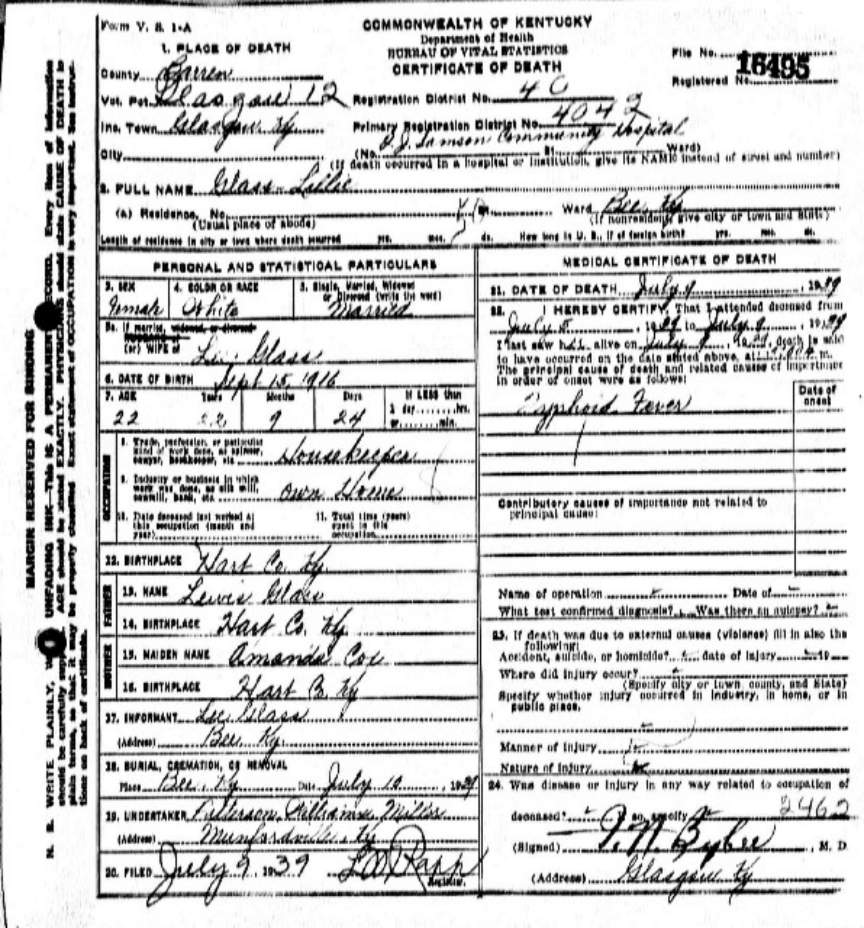 Form V. S. 1-A
COMMONWEALTH OF KENTUCKY
Department of Health
BUREAU OF VITAL STATISTICS
CERTIFICATE OF DEATH
File No. 16495
Registered No.
1. PLACE OF DEATH
County Barren
Vot. Pct. Glasgow 12 Registration District No. 40
Inc. Town Glasgow Ky Primary Registration District No. 4042
City (No. T. J. Samson Community Hospital St. Ward)
(If death occurred in a hospital or institution, give its NAME instead of street and number)
2. FULL NAME Glass Lillie
(a) Residence. No. Ward Bee Ky
(Usual place of abode) (If nonresident give city or town and State)
Length of residence in city or town where death occurred yrs. mos. ds. How long in U. S., if of foreign birth? yrs. mos. ds.
PERSONAL AND STATISTICAL PARTICULARS
3. SEX Female
4. COLOR OR RACE White
5. Single, Married, Widowed or Divorced (write the word) Married
5a. If married, widowed or divorced
HUSBAND of
(or) WIFE of Lee Glass
6. DATE OF BIRTH Sept 15, 1916
7. AGE 22 Years 22 Months 9 Days 24 If LESS than 1 day hrs. or min.
OCCUPATION
8. Trade, profession, or particular kind of work done, as spinner, sawyer, bookkeeper, etc. Housekeeper
9. Industry or business in which work was done, as silk mill, sawmill, bank, etc. Own Home
10. Date deceased last worked at this occupation (month and year)
11. Total time (years) spent in this occupation
12. BIRTHPLACE Hart Co. Ky
FATHER
13. NAME Lewis Glass
14. BIRTHPLACE Hart Co. Ky
MOTHER
15. MAIDEN NAME Amanda Coe
16. BIRTHPLACE Hart Co Ky
17. INFORMANT Lee Glass
(Address) Bee Ky.
18. BURIAL, CREMATION, OR REMOVAL
Place Bee, Ky Date July 10, 1939
19. UNDERTAKER Williams Miller
(Address) Munfordville, Ky
20. FILED July 9 1939 Registrar.
MEDICAL CERTIFICATE OF DEATH
21. DATE OF DEATH July 9, 1939
22. I HEREBY CERTIFY, That I attended deceased from
July 5, 1939 to July 9, 1939
I last saw alive on July 9, 1939, death is said
to have occurred on the date stated above, at m.
The principal cause of death and related causes of importance
in order of onset were as follows:
Date of onset
Typhoid Fever
Contributory causes of importance not related to
principal cause:
Name of operation Date of
What test confirmed diagnosis? Was there an autopsy?
23. If death was due to external causes (violence) fill in also the
following:
Accident, suicide, or homicide? date of injury 19
Where did injury occur?
(Specify city or town, county, and State)
Specify whether injury occurred in industry, in home, or in
public place.
Manner of injury
Nature of injury
24. Was disease or injury in any way related to occupation of
deceased? If so, specify 2462
(Signed) , M. D.
(Address) Glasgow Ky
MARGIN RESERVED FOR BINDING
N. B. WRITE PLAINLY, UNFADING INK—This IS A PERMANENT RECORD. Every item of information
should be carefully supplied. AGE should be stated EXACTLY. PHYSICIANS should state CAUSE OF DEATH in
plain terms, so that it may be properly classified. Exact statement of OCCUPATION is very important. See instructions on back of certificate.